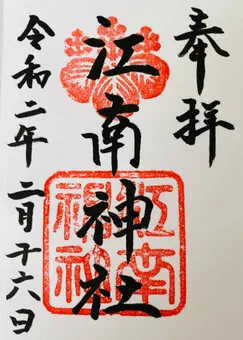 奉拝
江南神社
江南神社
令和二年二月十六日